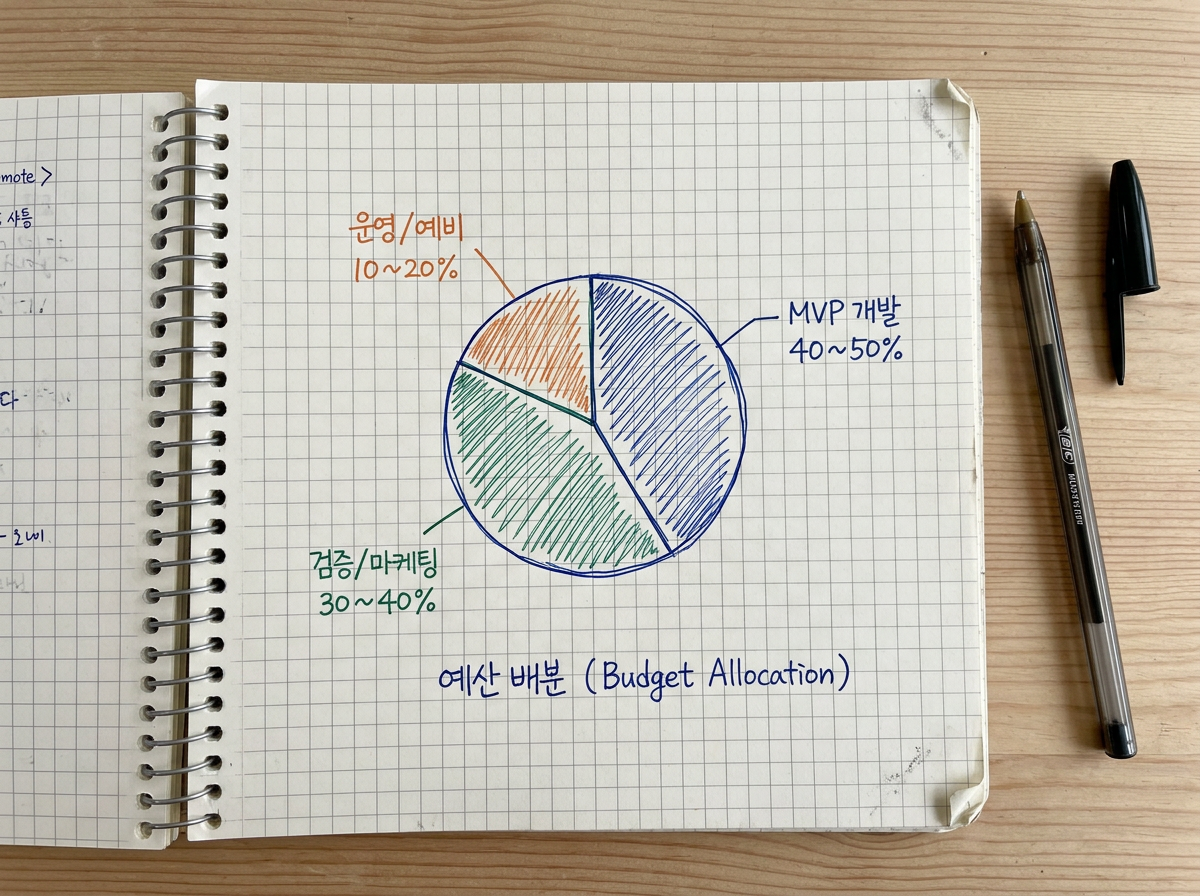 mote >
샤틀
다
운영/예비
10~20%
MVP 개발
40~50%
검증/마케팅
30~40%
예산 배분 (Budget Allocation)